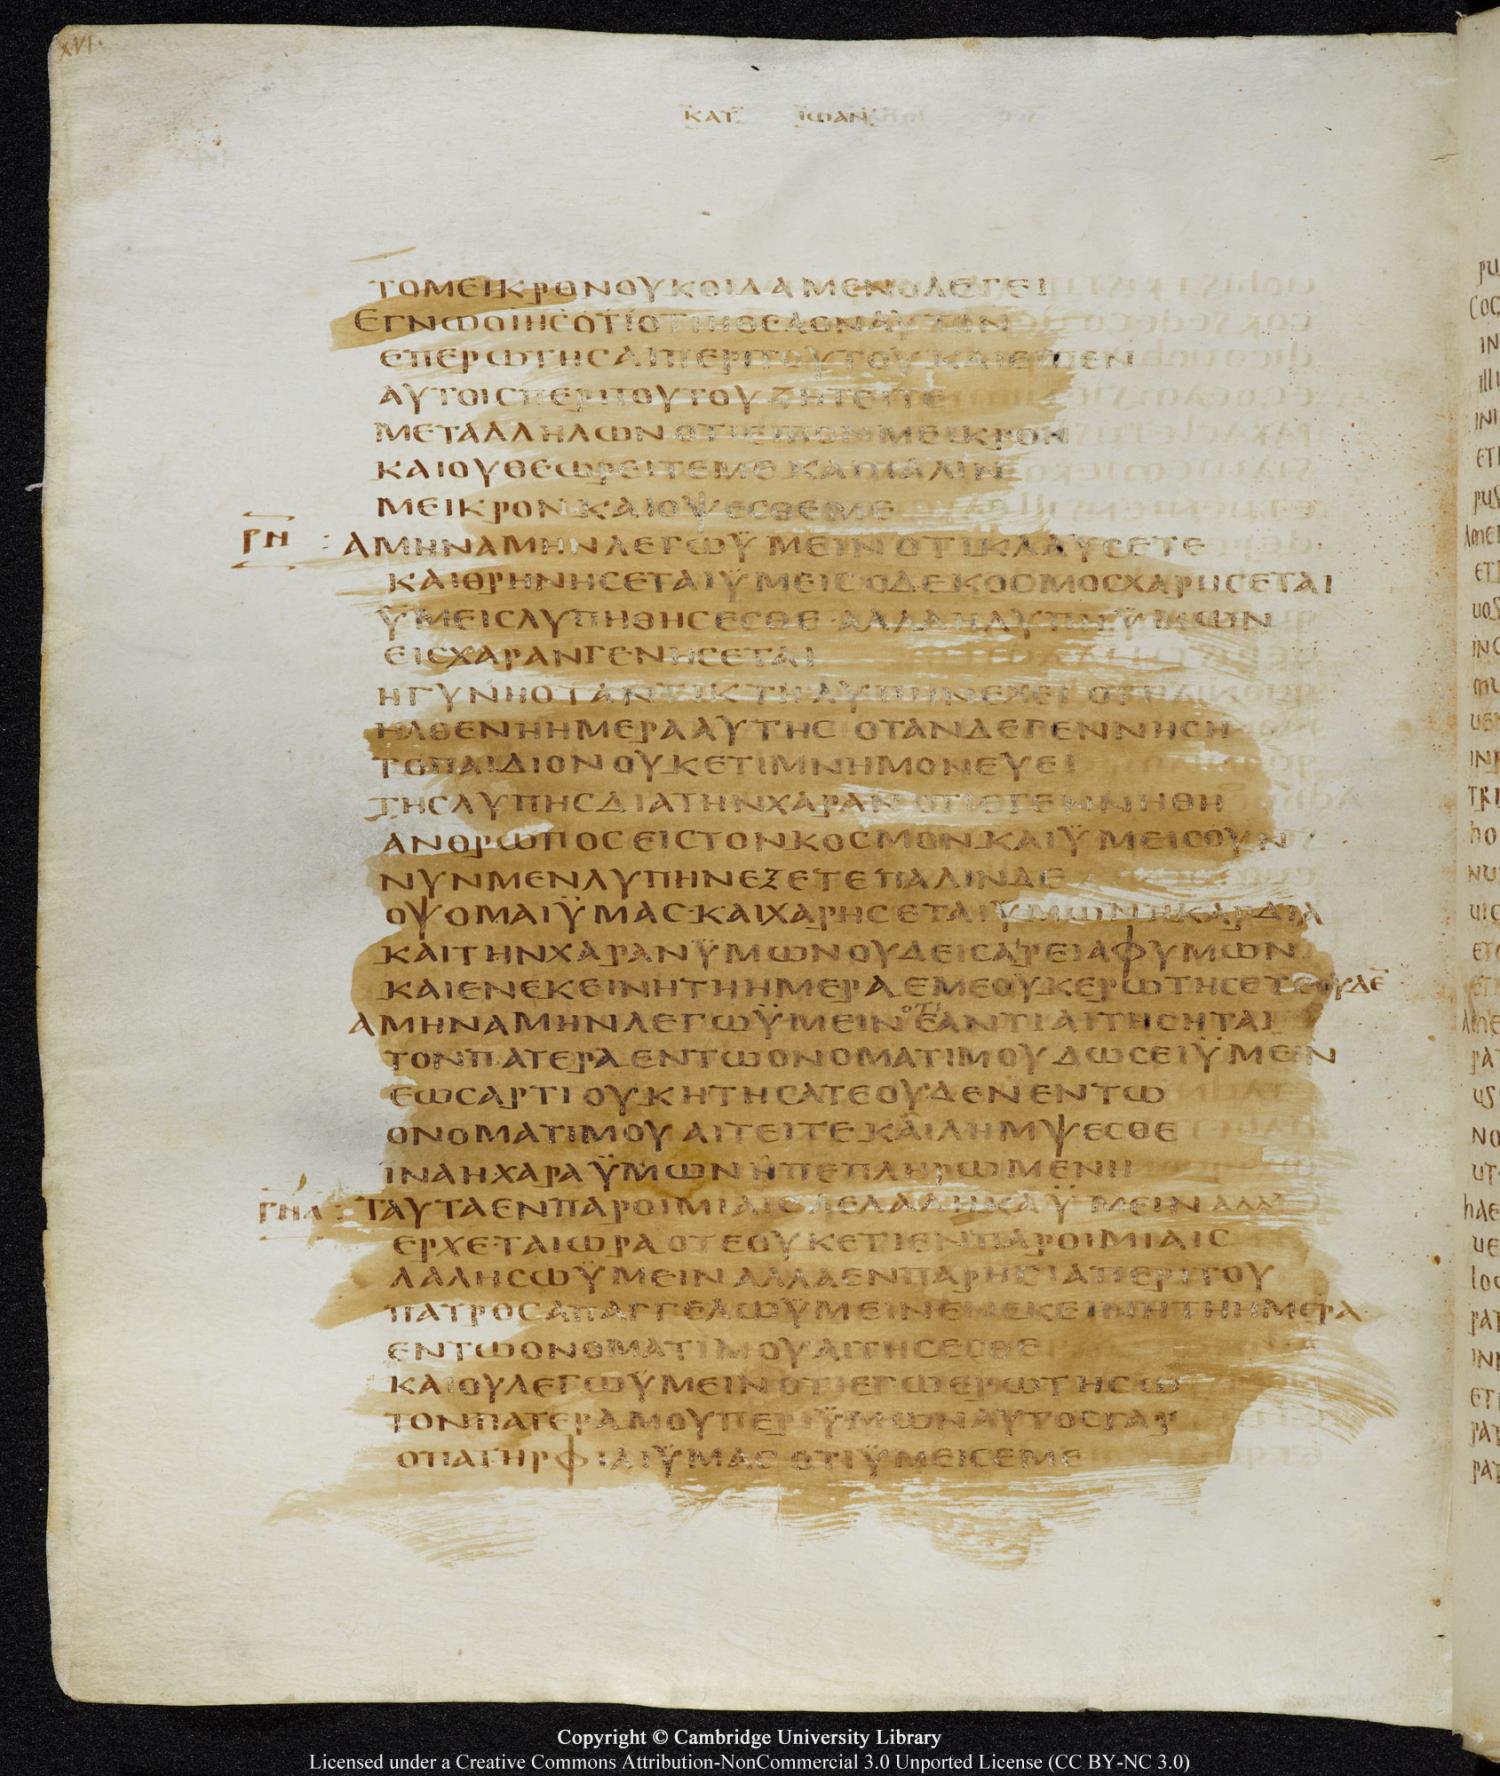 XVI.
ΚΑΤ ΙΩΑΝ
ΤΟΜΕΙΚΡΟΝΟΥΚΟΙΔΑΜΕΝΟΛΕΓΕΙ
ΕΓΝΩΟΙΗΣΟΤΙΟΤΙΗΘΕΛΟΝΑΥΤΟΝ
ΕΠΕΡΩΤΗΣΑΙΠΕΡΙΤΟΥΤΟΥΚΑΙΕΙΠΕΝ
ΑΥΤΟΙΣΠΕΡΙΤΟΥΤΟΥΖΗΤΕΙΤΕ
ΜΕΤΑΛΛΗΛΩΝΟΤΙΕΙΠΟΝΜΕΙΚΡΟΝ
ΚΑΙΟΥΘΕΩΡΕΙΤΕΜΕΚΑΙΠΑΛΙΝ
ΜΕΙΚΡΟΝΚΑΙΟΨΕΣΘΕΜΕ
ΡΝ : ΑΜΗΝΑΜΗΝΛΕΓΩΫΜΕΙΝΟΤΙΚΛΑΥΣΕΤΕ
ΚΑΙΘΡΗΝΗΣΕΤΑΙΫΜΕΙΣΟΔΕΚΟΣΜΟΣΧΑΡΗΣΕΤΑΙ
ΫΜΕΙΣΛΥΠΗΘΗΣΕΣΘΕ·ΑΛΛΑΗΛΥΠΗΫΜΩΝ
ΕΙΣΧΑΡΑΝΓΕΝΗΣΕΤΑΙ
ΗΓΥΝΗΟΤΑΝΤΙΚΤΗΛΥΠΗΝΕΧΕΙΟΤΙ
ΗΛΘΕΝΗΗΜΕΡΑΑΥΤΗΣ ΟΤΑΝΔΕΓΕΝΝΗΣΗ
ΤΟΠΑΙΔΙΟΝΟΥΚΕΤΙΜΝΗΜΟΝΕΥΕΙ
ΤΗΣΛΥΠΗΣΔΙΑΤΗΝΧΑΡΑΝΟΤΙΕΓΕΝΝΗΘΗ
ΑΝΘΡΩΠΟΣΕΙΣΤΟΝΚΟΣΜΟΝΚΑΙΫΜΕΙΣΟΥΝ
ΝΥΝΜΕΝΛΥΠΗΝΕΞΕΤΕΠΑΛΙΝΔΕ
ΟΨΟΜΑΙΫΜΑΣ·ΚΑΙΧΑΡΗΣΕΤΑΙΫΜΩΝΗΚΑΡΔΙΑ
ΚΑΙΤΗΝΧΑΡΑΝΫΜΩΝΟΥΔΕΙΣΑΡΕΙΑΦΥΜΩΝ
ΚΑΙΕΝΕΚΕΙΝΗΤΗΗΜΕΡΑΕΜΕΟΥΚΕΡΩΤΗΣΕΤΕΟΥΔΕ̄
ΑΜΗΝΑΜΗΝΛΕΓΩΫΜΕΙΝΟΤΙΕΑΝΤΙΑΙΤΗΣΗΤΑΙ
ΤΟΝΠΑΤΕΡΑΕΝΤΩΟΝΟΜΑΤΙΜΟΥΔΩΣΕΙΫΜΕΙΝ
ΕΩΣΑΡΤΙΟΥΚΗΤΗΣΑΤΕΟΥΔΕΝΕΝΤΩ
ΟΝΟΜΑΤΙΜΟΥΑΙΤΕΙΤΕ·ΚΑΙΛΗΜΨΕΣΘΕ
ΙΝΑΗΧΑΡΑΫΜΩΝΗΠΕΠΛΗΡΩΜΕΝΗ
ΡΝΑ : ΤΑΥΤΑΕΝΠΑΡΟΙΜΙΑΙΣΛΕΛΑΛΗΚΑΫΜΕΙΝ
ΕΡΧΕΤΑΙΩΡΑΟΤΕΟΥΚΕΤΙΕΝΠΑΡΟΙΜΙΑΙΣ
ΛΑΛΗΣΩΫΜΕΙΝΑΛΛΑΕΝΠΑΡΗΣΙΑΠΕΡΙΤΟΥ
ΠΑΤΡΟΣΑΠΑΓΓΕΛΩΫΜΕΙΝΕΝΕΚΕΙΝΗΤΗΗΜΕΡΑ
ΕΝΤΩΟΝΟΜΑΤΙΜΟΥΑΙΤΗΣΕΣΘΕ
ΚΑΙΟΥΛΕΓΩΫΜΕΙΝΟΤΙΕΓΩΕΡΩΤΗΣΩ
ΤΟΝΠΑΤΕΡΑΜΟΥΠΕΡΙΫΜΩΝΑΥΤΟΣΓΑΡ
ΟΠΑΤΗΡΦΙΛΙΫΜΑΣ ΟΤΙΫΜΕΙΣΕΜΕ
Copyright © Cambridge University Library
Licensed under a Creative Commons Attribution-NonCommercial 3.0 Unported License (CC BY-NC 3.0)